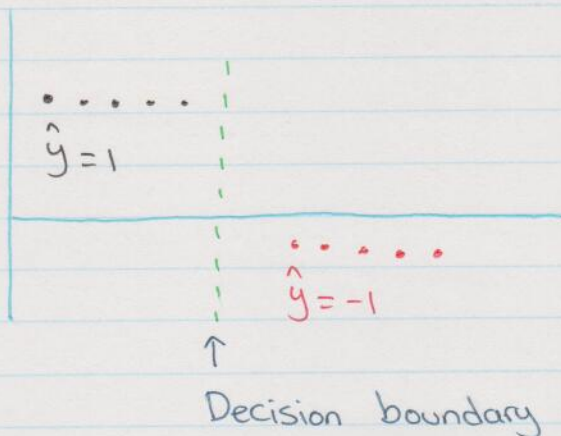 ŷ = 1
ŷ = -1
↑
Decision boundary